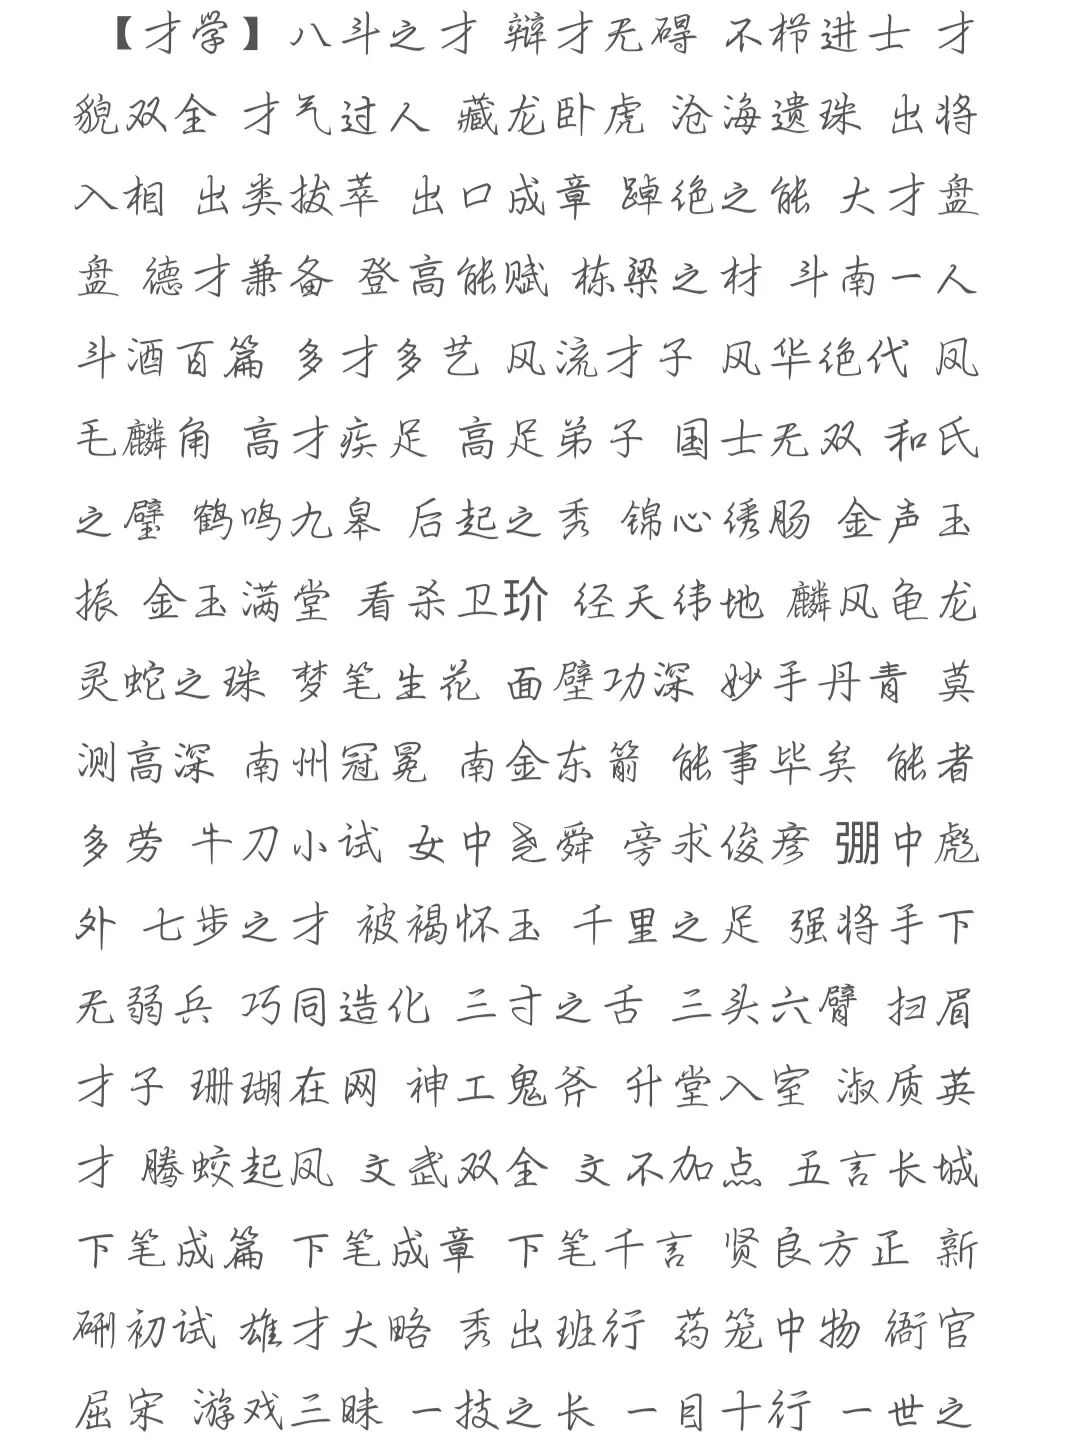 【才学】八斗之才 辩才无碍 不栉进士 才
貌双全 才气过人 藏龙卧虎 沧海遗珠 出将
入相 出类拔萃 出口成章 踔绝之能 大才盘
盘 德才兼备 登高能赋 栋梁之材 斗南一人
斗酒百篇 多才多艺 风流才子 风华绝代 凤
毛麟角 高才疾足 高足弟子 国士无双 和氏
之璧 鹤鸣九皋 后起之秀 锦心绣肠 金声玉
振 金玉满堂 看杀卫玠 经天纬地 麟凤龟龙
灵蛇之珠 梦笔生花 面壁功深 妙手丹青 莫
测高深 南州冠冕 南金东箭 能事毕矣 能者
多劳 牛刀小试 女中尧舜 旁求俊彦 弸中彪
外 七步之才 被褐怀玉 千里之足 强将手下
无弱兵 巧同造化 三寸之舌 三头六臂 扫眉
才子 珊瑚在网 神工鬼斧 升堂入室 淑质英
才 腾蛟起凤 文武双全 文不加点 五言长城
下笔成篇 下笔成章 下笔千言 贤良方正 新
硎初试 雄才大略 秀出班行 药笼中物 衙官
屈宋 游戏三昧 一技之长 一目十行 一世之